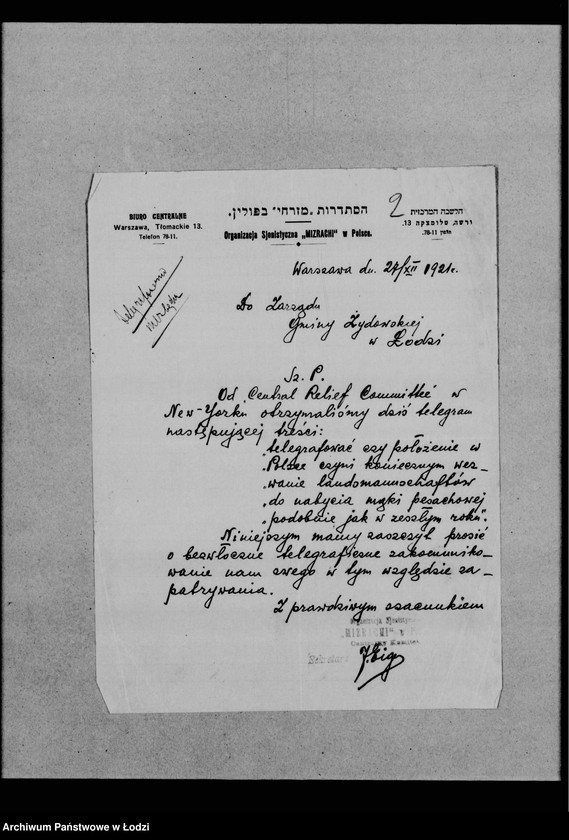 BIURO CENTRALNE
Warszawa, Tłomackie 13.
Telefon 78-11.
הסתדרות „מזרחי" בפולין.
Organizacja Sjonistyczna „MIZRACHI" w Polsce.
2
הלשכה המרכזית
ורשה, טלומצקה 13.
טלפון 78-11.
Warszawa dn. 27/XII 1921 r.
Do Zarządu
Gminy Żydowskiej
w Łodzi
Sz. P.
Od „Central Relief Committee" w
New-Yorku otrzymaliśmy dziś telegram
następującej treści:
„telegrafować czy położenie w
„Polsce czyni koniecznym wez-
„wanie landsmannschaftów
„do nabycia mąki pesachowej
„podobnie jak w zeszłym roku".
Niniejszym mamy zaszczyt prosić
o bezwłoczne telegraficzne zakomuniko-
wanie nam swego w tym względzie za-
patrywania.
Z prawdziwym szacunkiem
Organizacja Sjonistyczna
„MIZRACHI" w P
Centralny Komitet
Archiwum Państwowe w Łodzi